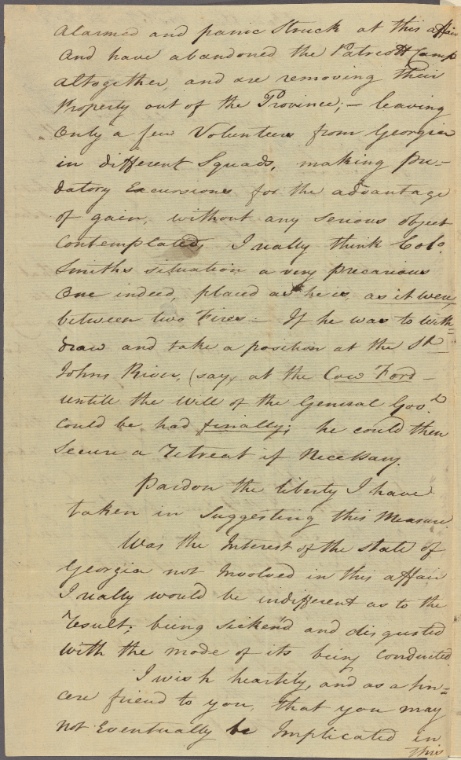 alarmed and panic Struck at this affair
and have abandoned the Patriott Camp
altogether, and are removing their
Property out of the Province; — leaving
Only a few Volunteers from Georgia
in different Squads, making pre-
datory Excursions for the advantage
of gain, without any serious object
Contemplated, I really think Colo.
Smiths situation a very precarious
One indeed, placed as he is, as it were,
between two Fires — If he was to with=
draw and take a position at the St.
Johns River, (say, at the Cow Ford —
untill the Will of the General Gov.t
Could be had finally; he could then
Secure a Retreat if Necessary.
Pardon the liberty I have
taken in Suggesting this Measure
Was the Interest of the State of
Georgia not Involved in this affair
I really would be indifferent as to the
Result; being sicken'd and disgusted
with the mode of its being Conducted
I wish heartily, and as a sin=
cere friend to you, that you may
not Eventually be Implicated in
this